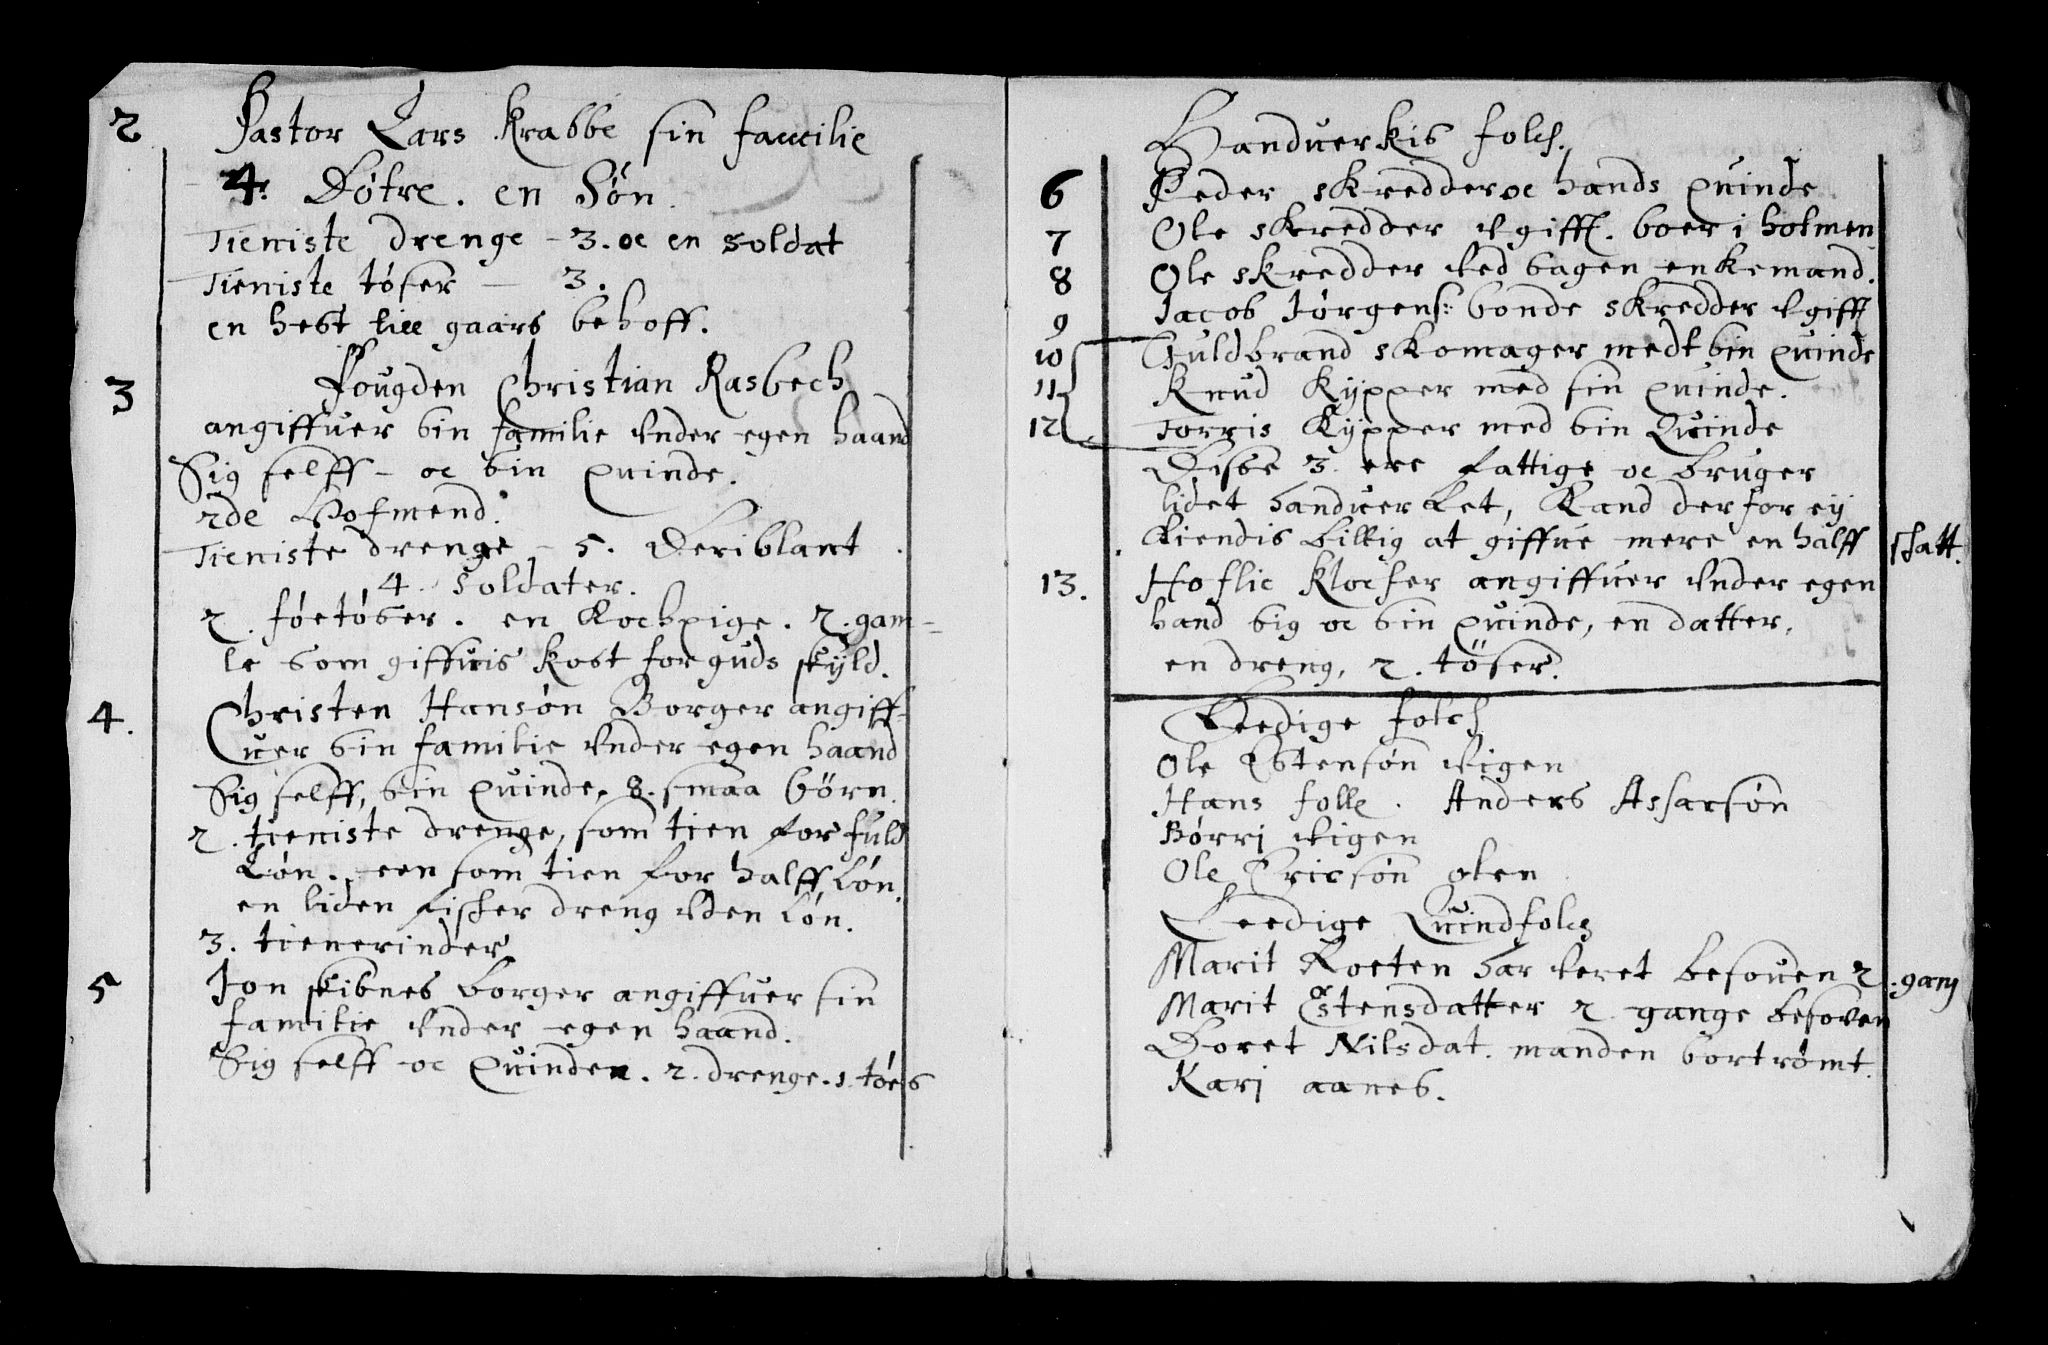 2 Pastor Lars Krabbe sin familie
4. Døtre. en Søn.
Tieniste drenge - 3. oc en soldat
Tieniste tøser - 3.
en hest till gaars behoff.
3 Fougden Christian Rasbech
angiffuer sin familie Vnder egen haand
Sig selff - oc sin quinde.
2de Hofmend.
Tieniste drenge - 5. Deriblant
4. soldater.
2. føetøser. en Kochpige. 2. gam-
le som giffuis kost for guds skyld.
4. Christen Hansøn Borger angiff-
uer sin familie Vnder egen haand
Sig selff, sin quinde, 8. smaa børn.
2. tieniste drenge, som tien for fuld
Løn. een som tien for halff Løn.
en liden fischer dreng Vden Løn.
3. tienerinder
5 Jon skibnes borger angiffuer sin
familie Vnder egen haand.
Sig selff oc Quinden. 2. drenge. 1. tøes
Handuerkis folch.
6 Peder skredder oc hands quinde
7 Ole skredder Vgifft. boer i holmen
8 Ole skredder Ved bagen enkemand.
9 Jacob Jørgens: bonde skredder Vgifft
10 Guldbrand skomager medt sin quinde
11 Knud Kypper med sin quinde.
12 Torris Kypper med sin Quinde
Disse 3. ere fattige oc bruger
lidet handuerket, Kand derfor ey
Kiendis billig at giffue mere en halff skatt.
13. Hoflie Klocker angiffuer Vnder egen
hand sig oc sin quinde, en datter,
en dreng, 2. tøser.
Leedige folch
Ole Estensøn Vigen
Hans folle. Anders Assarsøn
Børri Vigen
Ole Ericsøn oten
Leedige Quindfolch
Marit Roeten har Veret besouen 2. gang
Marit Estensdatter 2 gange besoven
Doret Nilsdat. manden bortrømt.
Kari aanes.